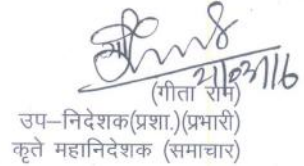 (गीता राम)
उप–निदेशक(प्रशा.)(प्रभारी)
कृते महानिदेशक (समाचार)